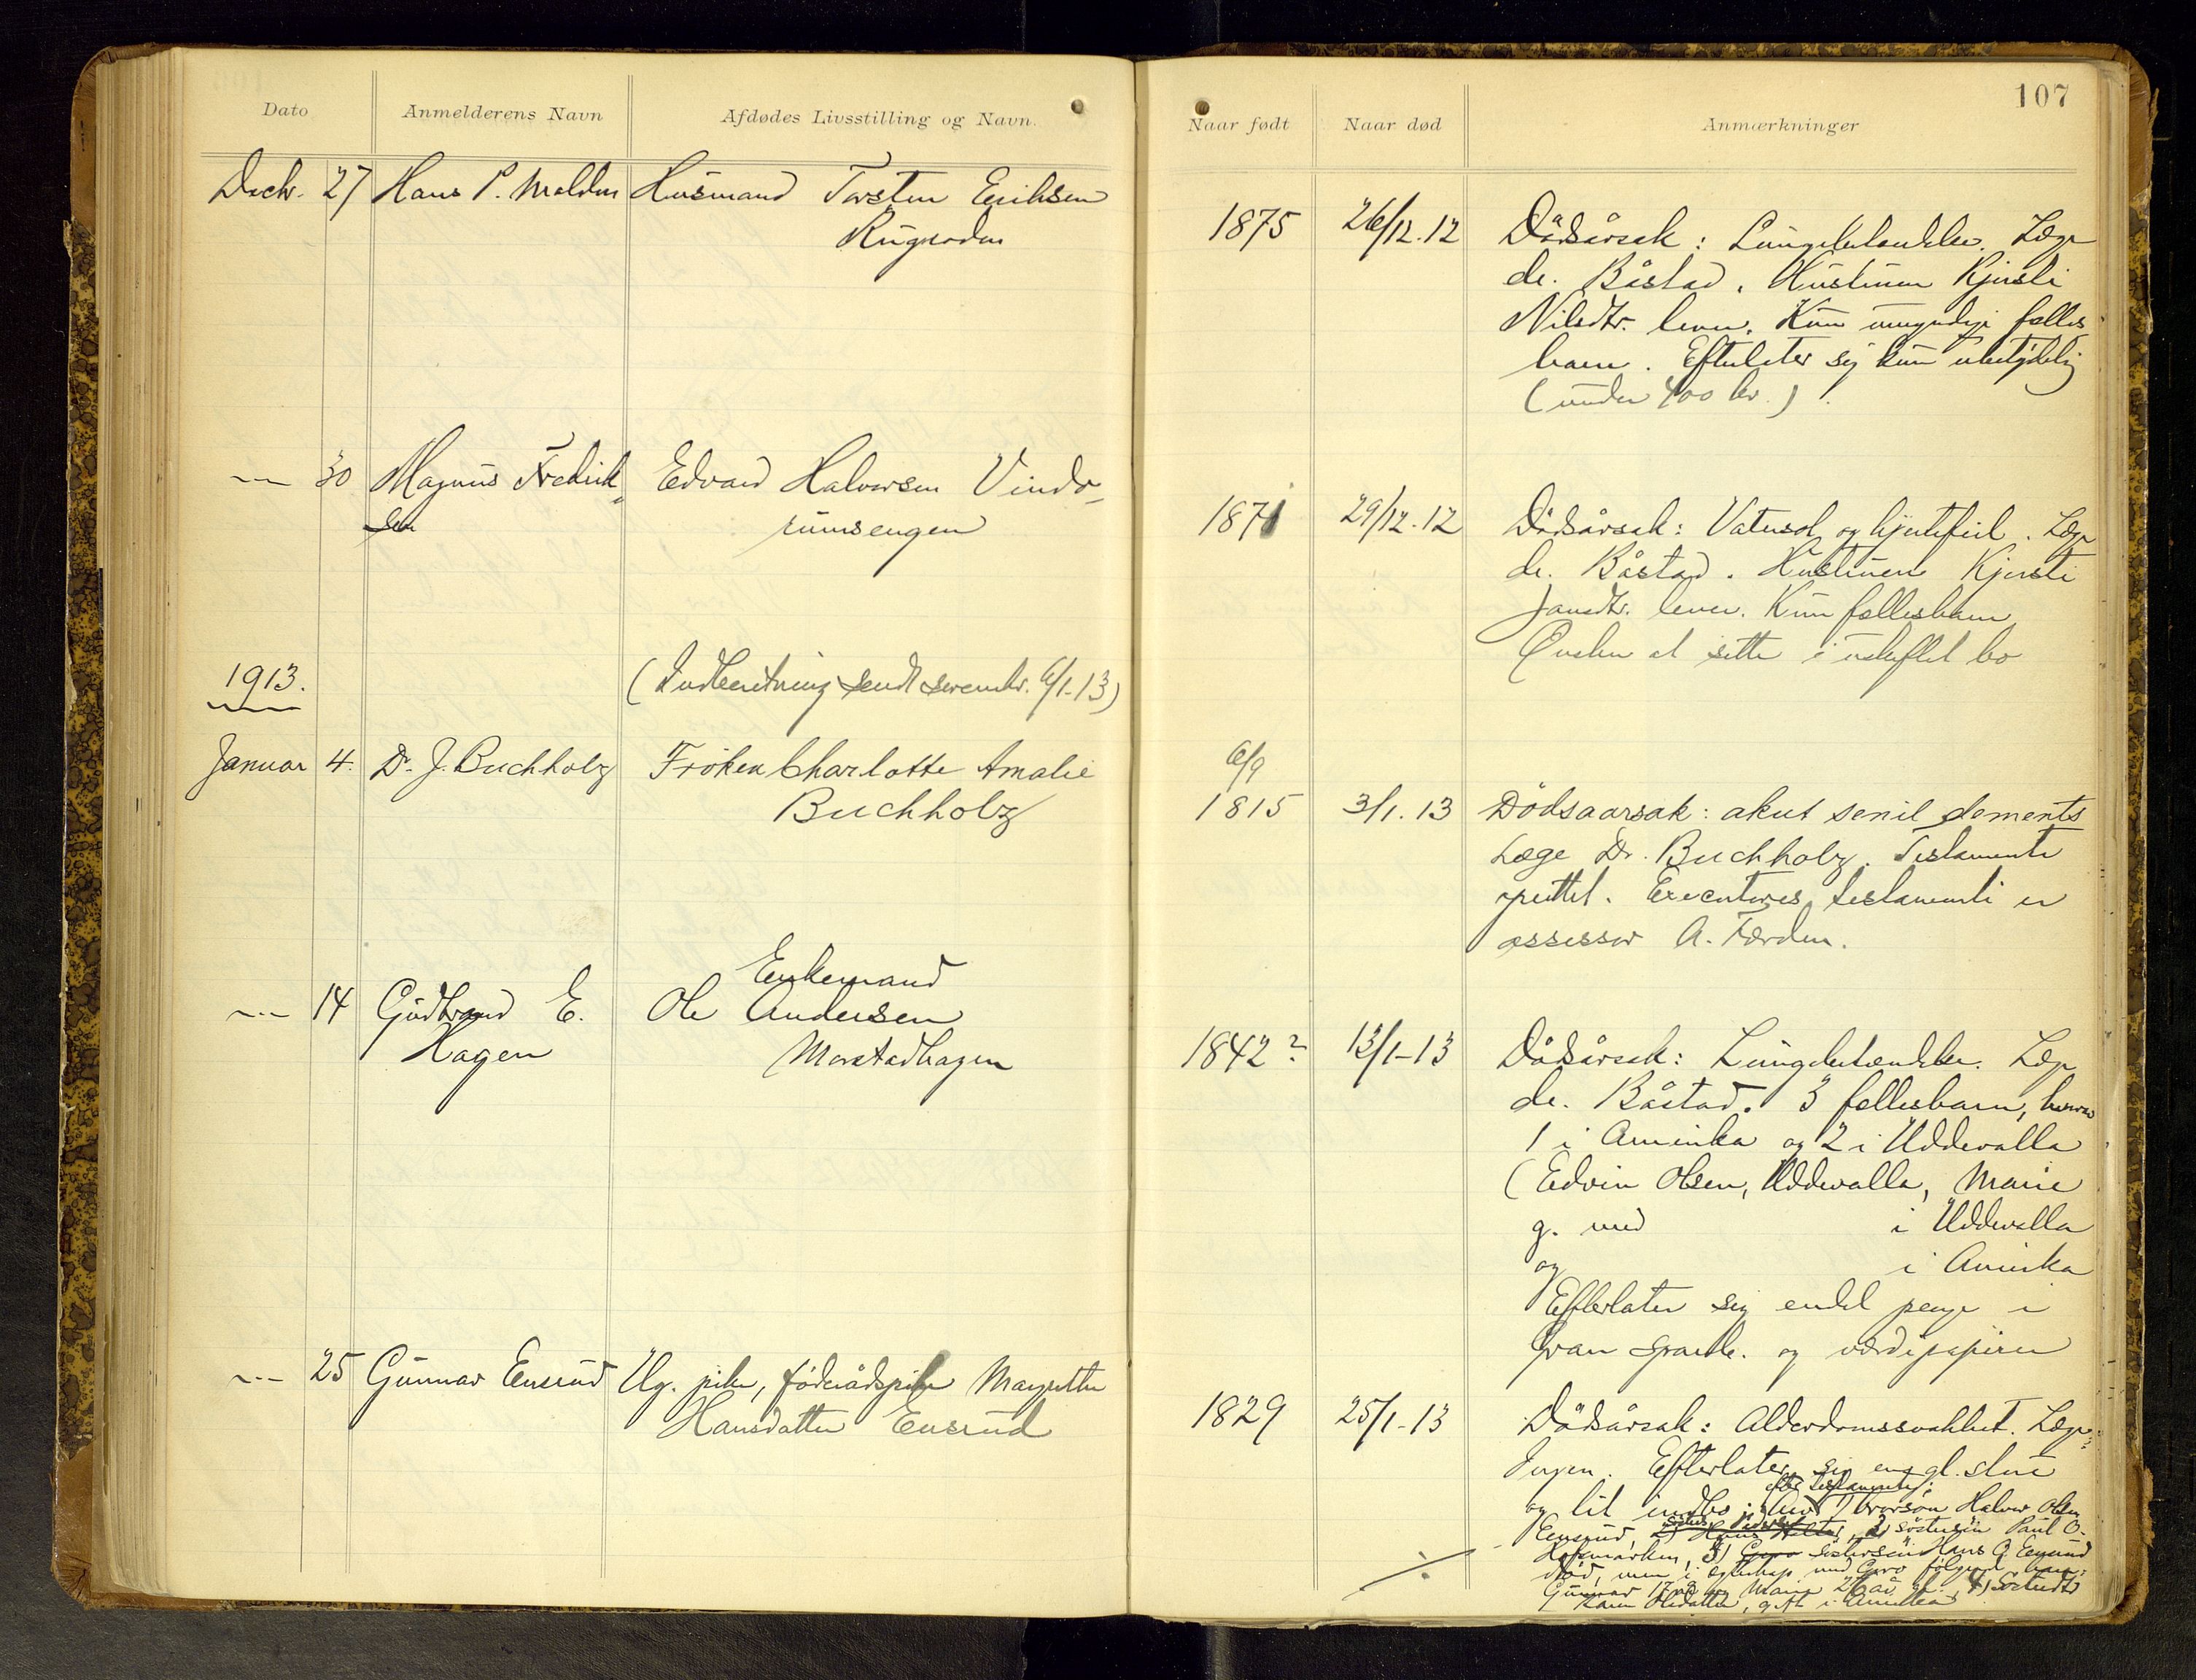 107
Dato Anmelderens Navn Afdødes Livsstilling og Navn. Naar født Naar død Anmærkninger
Decbr. 27 Hans P. Molden Husmand Torsten Eriksen
1875 26/12.12 Dødsårsak: Lungebetændelse. Læge
de. Båstad. Hustruen Kjersti
Nilsdtr. lever. Kun umyndige fælles
barn. Efterlater sig kun ubetydelig
(under 400 kr.)
30 Magnus Fredrik-
sen
Edvard Halvorsen Vindo-
rumsengen
1871 29/12.12 Dødsårsak: Vatersot og hjertefeil. Læge
de. Båstad. Hustruen Kjersti
Jansdtr. lever. Kun fellesbarn
Ønsker at sitte i uskiftet bo
1913.
(Indberetning sendt sorenskr. 6/1-13)
Januar 4. Dr. J. Buchholz Frøken Charlotte Amalie
Buchholz
6/9
1815 3/1.13 Dødsaarsak: akut senil dements
Læge Dr. Buchholz. Testamente
oprettet. Executores testamenti er
assessor A. Færden.
14 Gudbrand E.
Hagen
Enkemand
Ole Andersen
Morstadhagen
1842? 13/1-13 Dødsårsak: Lungebetændelse. Læge
de. Båstad. 3 fellesbarn, hvorav
1 i Amerika og 2 i Uddevalla
(Edvin Olsen, Uddevalla, Marie
g. med i Uddevalla
og i Amerika
Efterlater sig endel penge i
Gran sparbk. og værdipapirer
25 Gunnar Eensrud Ug. pike, føderådspike Margrethe
Hansdatter Eensrud
1829 25/1-13 Dødsårsak: Alderdomssvakhet. Læge:
Ingen. Efterlater sig en gl. stue
og lit indbo
efter testamente:
brorsøn Halvor Olsen
Eensrud, 2) søstersøn Paul O.
3) søstersøn Hans G. Eensrud
død, men i egteskap med Goro følgende barn:
Gunnar 17 år og Marie 26 år 4) Søsterdtr
Karen Olsdatter, gift i Amerika